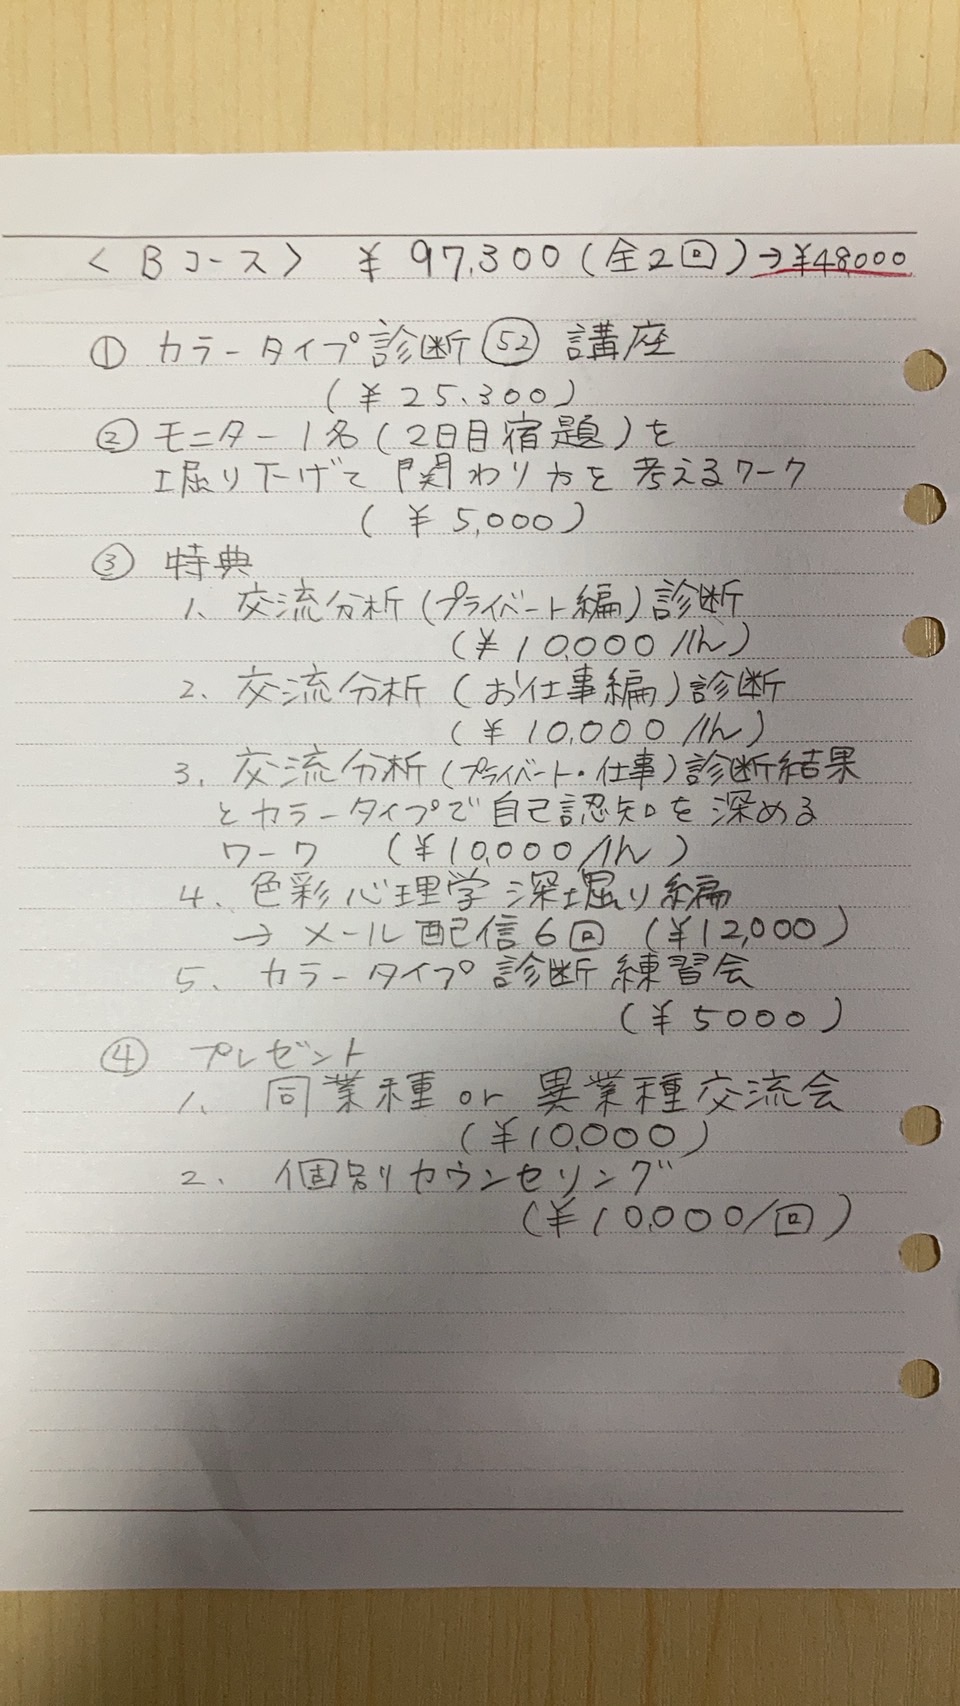 <Bコース> ¥97,300(全2回)→¥48,000
① カラータイプ診断㊾講座
(¥25,300)
② モニター1名(2日目宿題)を
堀り下げて関わり方を考えるワーク
(¥5,000)
③ 特典
1、交流分析(プライベート編)診断
(¥10,000/1h)
2、交流分析(お仕事編)診断
(¥10,000/1h)
3、交流分析(プライベート・仕事)診断結果
とカラータイプで自己認知を深める
ワーク (¥10,000/1h)
4、色彩心理学深堀り編
→メール配信6回 (¥12,000)
5、カラータイプ診断練習会
(¥5000)
④ プレゼント
1、同業種or異業種交流会
(¥10,000)
2、個別カウンセリング
(¥10,000/回)